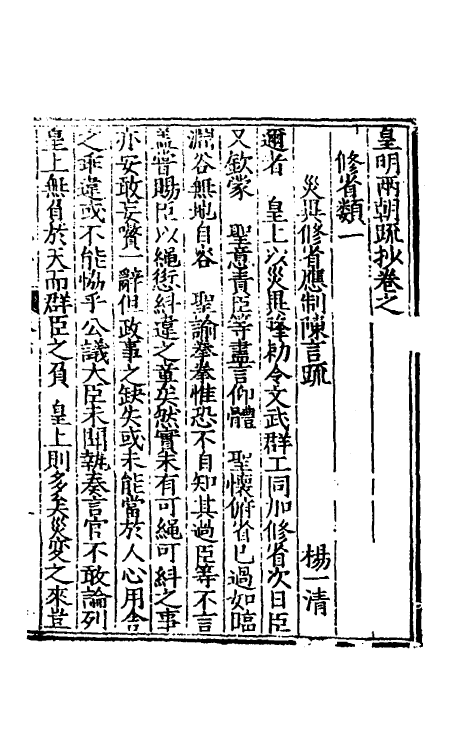 皇明兩朝疏抄卷之
修省類一
災異修省應制陳言疏　楊一清
邇者　皇上以災異逢勑令文武群工同加修省次日臣
又欽蒙　聖意責臣等盡言仰體　聖懷俯省己過如臨
淵谷無地自容　聖諭拳拳惟恐不自知其過臣等不言
蓋嘗賜臣以繩愆糾違之章矣然實未有可繩可糾之事
亦安敢妄贊一辭但政事之缺失或未能當於人心用舍
之乖違或不能恊乎公議大臣未聞執奏言官不敢論列
皇上無負於天而群臣之負　皇上則多矣災變之來豈